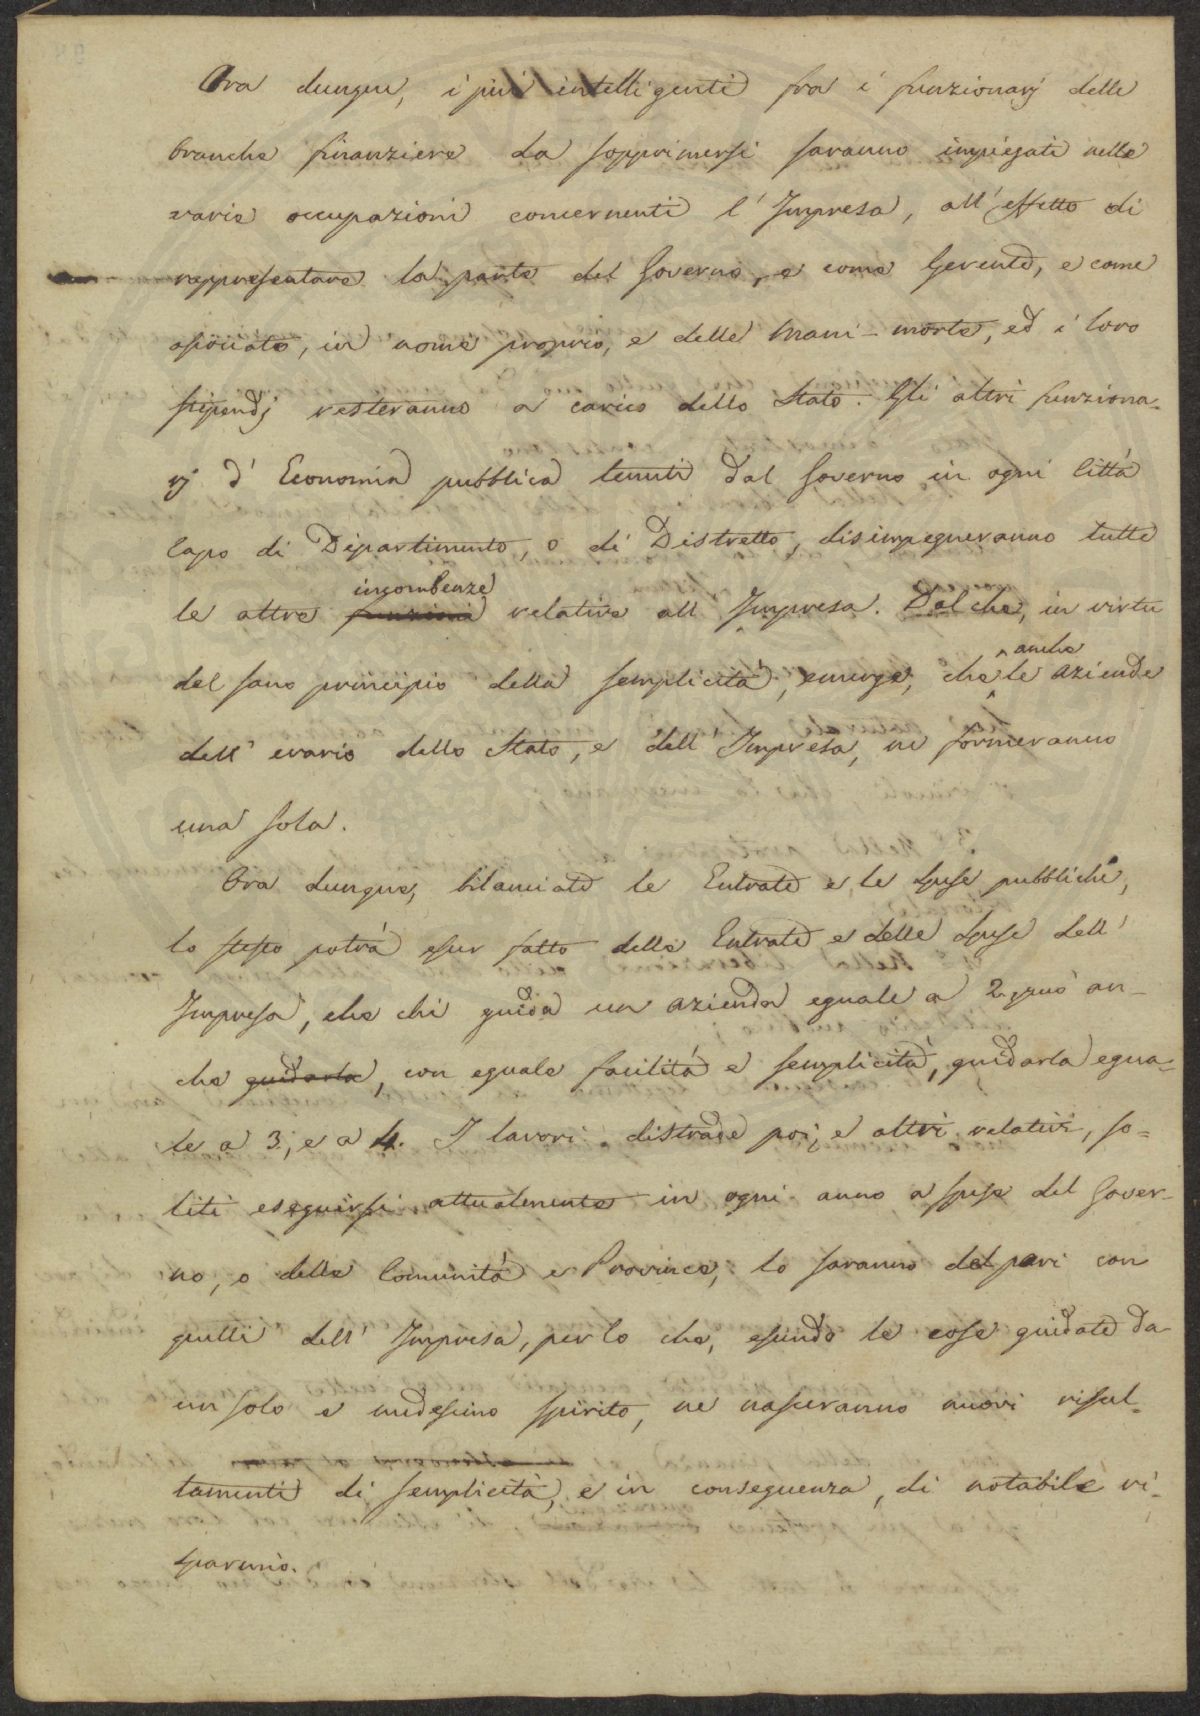 Ora dunque, i più intelligenti fra i funzionarj delle
branche finanziere da sopprimersi saranno impiegati nelle
varie occupazioni concernenti l'Impresa, all'effetto di
rappresentare la parte del Governo, e come Gerente, e come
associato, in nome proprio, e delle Mani-morte, ed i loro
stipendj resteranno a carico dello Stato. Gli altri funziona-
rj d'Economia pubblica tenuti dal Governo in ogni Città
Capo di Dipartimento, o di Distretto, disimpegneranno tutte
incombenze
le altre funzioni relative all'Impresa. Dal che, in virtù
anche
del sano principio della semplicità, emerge, che le aziende
dell'erario dello Stato, e dell'Impresa, ne formeranno
una sola.
Ora dunque, bilanciate le Entrate e le Spese pubbliche,
lo stesso potrà esser fatto delle Entrate e delle Spese dell'
Impresa, che chi guida un azienda eguale a 2, può an-
che guidarla, con eguale facilità e semplicità, guidarla egua-
le a 3, e a 4. I lavori distrade poi, e altri relativi, so-
liti eseguirsi attualmente in ogni anno a spese del Gover-
no, o delle Comunità e Provincie, lo saranno del pari con
quelli dell'Impresa, per lo che, essendo le cose guidate da
un solo e medesimo spirito, ne nasceranno nuovi risul-
tamenti di semplicità, e in conseguenza, di notabile ri-
sparmio.